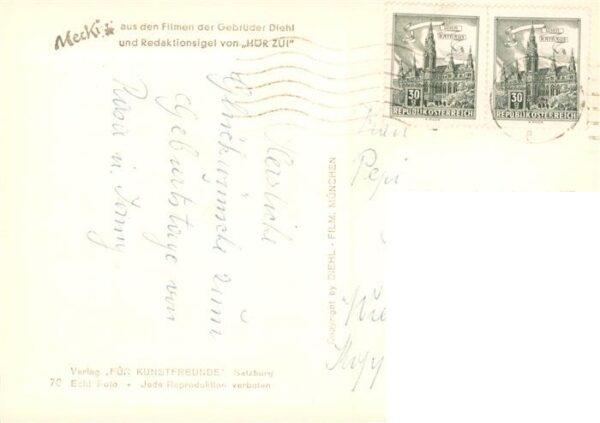 Mecki aus den Filmen der Gebrüder Diehl
und Redaktionsigel von „HÖR ZU!"
WIEN
RATHAUS
30
REPUBLIK ÖSTERREICH
WIEN
RATHAUS
30
REPUBLIK ÖSTERREICH
Herzliche
Glückwünsche zum
Geburtstage von
Rosa u.
Pepi
Copyright by DIEHL - FILM, MÜNCHEN
Verlag „FÜR KUNSTFREUNDE" Salzburg
70 Echt Foto - Jede Reproduktion verboten